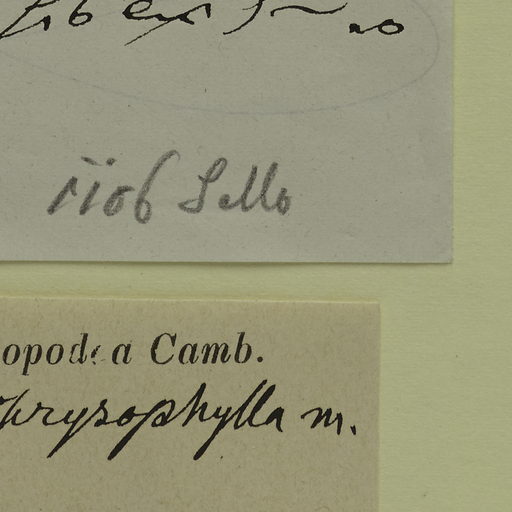 1106 Sello
opodea Camb.
chrysophylla m.